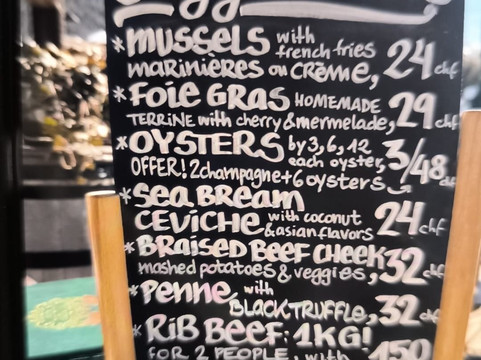 *MUSSELS with french fries
MARINIÈRES ou CRÈME, 24 chf
*FOIE GRAS HOMEMADE
TERRINE with cherry & mermelade, 29 chf
*OYSTERS by 3, 6, 12 each oyster, 3/48 chf
OFFER! 2 champagne + 6 oysters
*SEA BREAM
CEVICHE with coconut & asian flavors 24 chf
*BRAISED BEEF CHEEK
mashed potatoes & veggies, 32 chf
*PENNE with
BLACK TRUFFLE, 32 chf
*RIB BEEF: 1KG!
FOR 2 PEOPLE, with 150